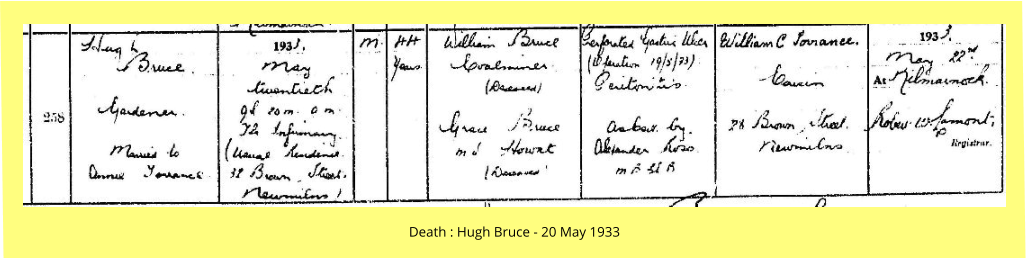 258
Hugh
Bruce.
Gardener.
Married to
Annie Torrance
1933.
May
twentieth
9h 20m. a.m.
The Infirmary
(Usual Residence
32 Brown Street.
Newmilns)
M.
44
Years
William Bruce
Coalminer
(Deceased)
Grace Bruce
m.s. Howat
(Deceased)
Perforated Gastric Ulcer
(Operation 19/5/33)
Peritonitis
As cert. by
Alexander Ross
William C Torrance.
Cousin
Brown Street.
Newmilns
1933.
May 22nd
At Kilmarnock.
Robert W. Lamont,
Registrar.
Death : Hugh Bruce - 20 May 1933